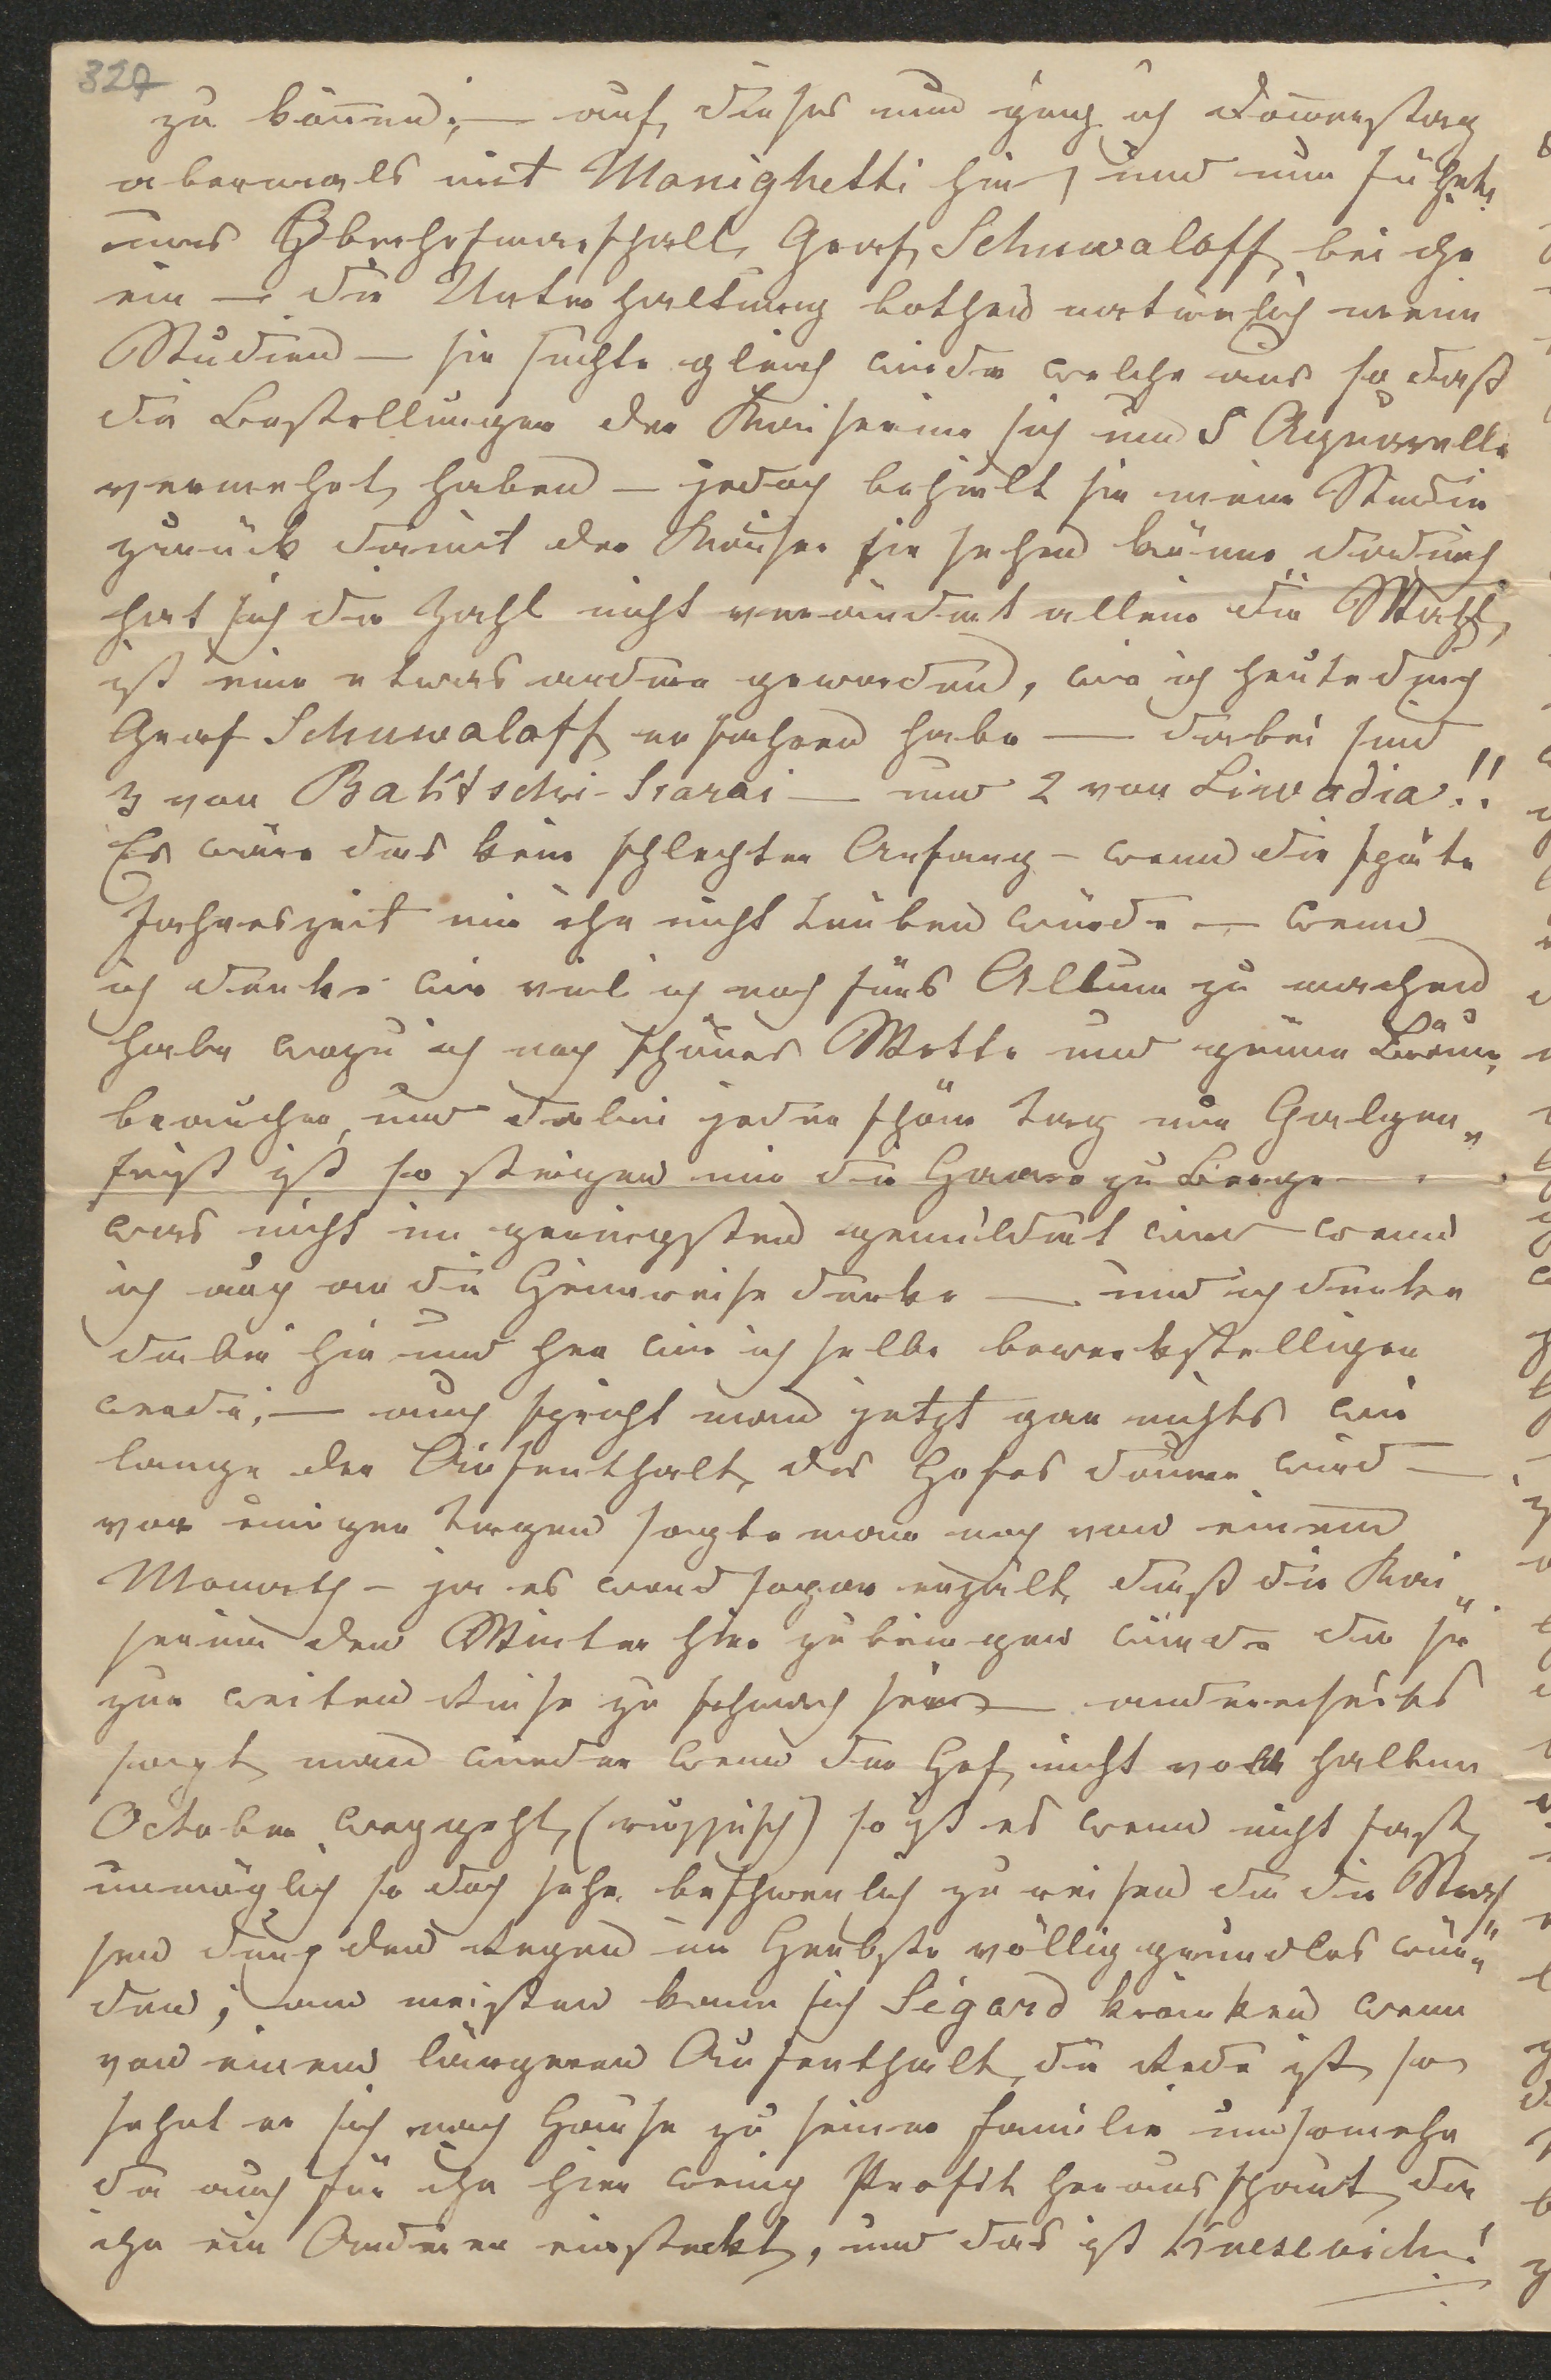 327
zu können; — auf dieses nun ging ich Donnerstag
abermals mit Monighetti hin, und nun führte
uns Oberhofmarschall Graf Schuwaloff bei ihr
ein — die Unterhaltung bothen natürlich meine
Studien — sie suchte gleich wieder welche aus so daß
die Bestellungen der Kaiserinn sich um 5 Aquarelle
vermehrt haben — jedoch behielt sie meine Studien
zurück damit der Kaiser sie sehen könne, dadurch
hat sich die Zahl nicht verändert allein die Wahl
ist eine etwas andere geworden, wie ich heute durch
Graf Schuwaloff erfahren habe — dabei sind
3 von Baktschi-Sarai — und 2 von Liwadia!!
Es wäre das kein schlechter Anfang — wenn die späte
Jahreszeit mir ihn nicht trüben würde — wenn
ich denke wie viel ich noch fürs Album zu machen
habe wozu ich noch schönes Wetter und grüne Bäume
brauche, und dabei jeder schöne Tag nur Galgen„
frist ist so steigen mir die Haare zu Berge —
was nicht im geringsten gemildert wird wenn
ich auch an die Heimreise denke — und ich denke
dabei hin und her wie ich selbe bewerkstelligen
werde; — auch spricht man jetzt gar nichts wie
lange der Aufenthalt des Hofes dauern wird —
vor einigen Tagen sagte man noch von einem
Monath — ja es ward sogar erzält, daß die Kai„
serinn den Winter hier zubringen würde da sie
zur weiten Reise zu schwach sei — andererseits
sagt man wieder wenn der Hof nicht vor halben
October weggeht, (russisch) so ist es wenn nicht fast
unmöglich so doch sehr beschwerlich zu reisen da die Stras„
sen durch den Regen im Herbste völlig grundlos wür„
den; am meisten kann sich Sigard kränken wenn
von einem längeren Aufenthalt die Rede ist, so
sehnt er sich nach Hause zu seiner Familie umsomehr
da auch für ihn hier wenig Profit herausschaut, da
ihn ein Anderer einsteckt, und das ist Knesevich!